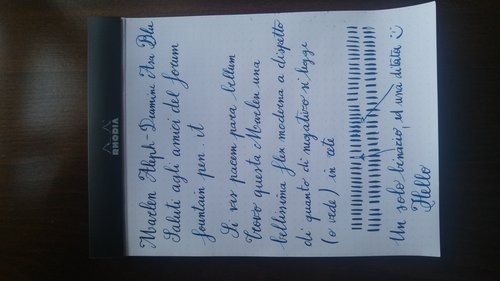 RHODIA
Marlen Aleph - Diamine Asa Blu
Saluti agli amici del forum
fountain pen . it
Si vis pacem para bellum
Trovo questa Marlen una
bellissima flex moderna a dispetto
di quanto di negativo si legge
(o vede) in rete
Un solo binario, ed una ditata
Hello